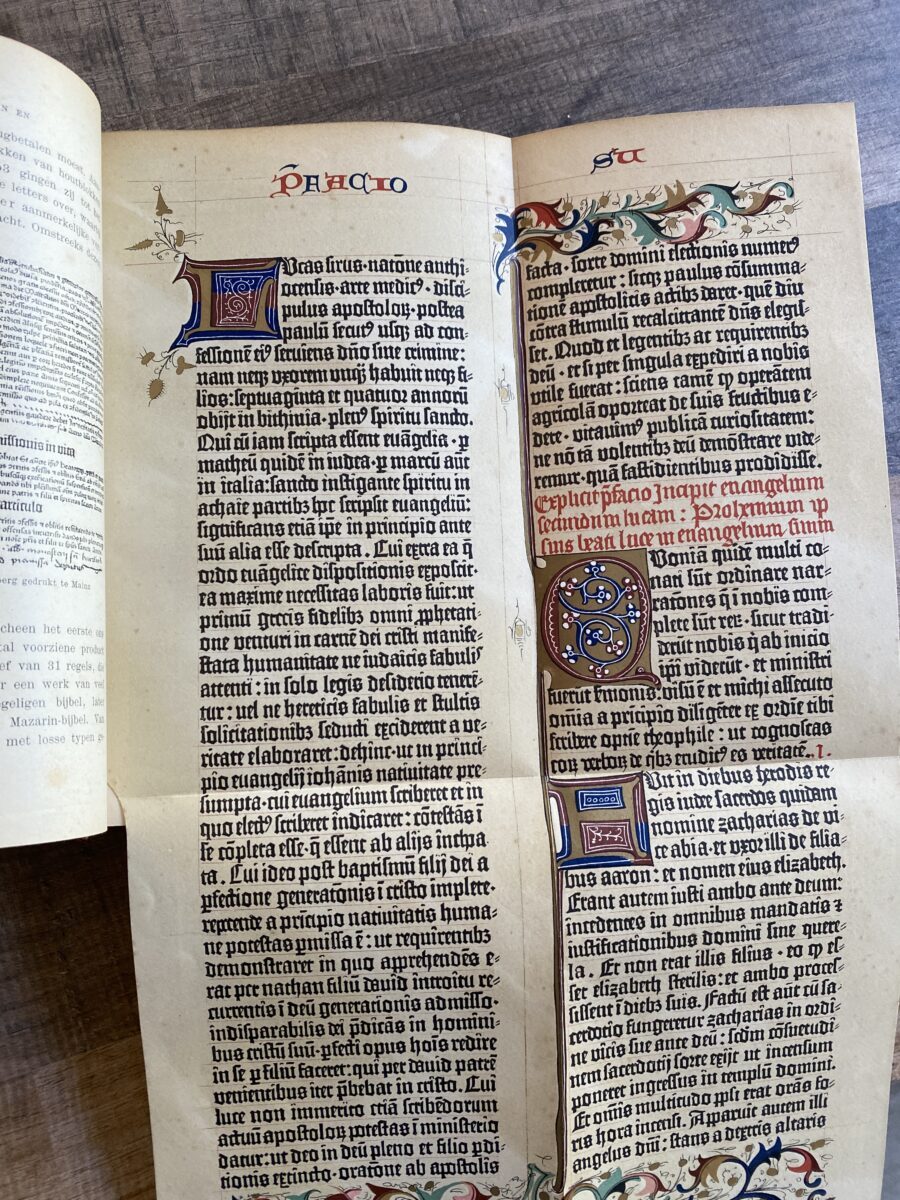 N EN
ugbetalen moest.
kken van houtblokken
53 gingen zij tot het
e letters over, waarbij
er aanmerkelijke
acht. Omstreeks
missionis in vita
articulo
berg gedrukt te Mainz
cheen het eerste
tal voorziene product
ef van 31 regels, die
r een werk van veel
egeligen bijbel, later
Mazarin-bijbel. Van
met losse typen ge-
P̄FACIO
Lucas sirus·natōne anthi-
ocensis·arte medic⁹·disci-
pulus apostoloꝝ·postea
paulū secut⁹ usqꝫ ad con-
fessionē ei⁹ serviens dn̄o sine crimine:
nam neqꝫ vxorem vnqȝ habuit neqꝫ fi-
lios: septuaginta et quatuor annorū
obijt in bithinia·plen⁹ spiritu sancto.
Qui cū iam scripta essent euāgelia·ꝑ
matheū quidē in iudea·ꝑ marcū aūt
in italia: sancto instigante spiritu in
achaie partibꝫ hoc scripsit euangeliū:
significans etiā ip̄e in principio ante
suū alia esse descripta. Cui extra ea q̄
ordo euāgelice dispositionis exposcit·
ea maxime necessitas laboris fuit: ut
primū grecis fidelibꝫ omni ꝓphetati-
one venturi in carnē dei cristi manife-
stata humanitate ne iudaicis fabulis
attenti: in solo legis desiderio tenerē-
tur: uel ne hereticis fabulis et stultis
solicitationibꝫ seducti exciderent a ve-
ritate elaboraret: dehinc·ut in princi-
pio euangelij iohānis natiuitate pre-
sumpta·cui euangelium scriberet et in
quo elect⁹ scriberet indicaret: cōtestās ī
se cōpleta esse·q̄ essent ab alijs īncepa
ta. Cui ideo post baptismū filij dei a
ꝑfectione generatōnis ī cristo implete·
repetende a prīcipio natiuitatis huma-
ne potestas ꝑmissa ē: ut requirentibꝫ
demonstraret in quo apprehendēs e-
rat per nathan filiū dauid introitu re-
currentis ī deū generationis admisso·
indisparabilis dei p̄dicās in homini-
bus cristū suū·ꝑfecti opus hoīs redire
in se ꝑ filiū faceret: qui per dauid patrē
venientibus iter p̄bebat in cristo. Cui
luce non immerito etiā scribēdorum
actuū apostoloꝝ potestas ī ministerio
datur: ut deo in deū pleno et filio ꝑdi-
tionis extincto·oratōne ab apostolis
SU
facta·sorte domini electionis numer⁹
compleretur: sicqꝫ paulus cōsumma-
tionē apostolicis actibꝫ daret·quē diu
cōtra stimulū recalcitrantē dn̄s elegis-
set. Quod et legentibꝫ ac requirentibꝫ
deū·et si per singula expediri a nobis
vtile fuerat: sciens tamē ꝙ operātem
agricolā oporteat de suis fructibus e-
dere·vitauim⁹ publicā curiositatem:
ne nō tā volentibꝫ deū demōstrare vide-
remur·quā fastidientibus prodidisse.
Explicit p̄facio Incipit euangelium
secundum lucam: Prohemium ip
sius beati luce in euangelium suum
Quoniā quidē multi co-
nati sūt ordinare nar-
ratōnes q̄ ī nobis com-
plete sūt reꝝ·sicut tradi
derūt nobis q̄ ab inicio
ip̄i viderūt·et ministri
fuerūt s̄monis: visū ē et michi assecuto
omīa a prīcipio diligēter ex ordīe tibi
scribere optīe theophile: ut cognoscas
eoꝝ verboꝝ de qībꝫ erudit⁹ es veritatē. I.
Fuit in diebus herodis re-
gis iudee sacerdos quidam
nomine zacharias de vi-
ce abia·et vxor illi de filia-
bus aaron: et nomen eius elizabeth.
Erant autem iusti ambo ante deum:
incedentes in omnibus mandatis ⁊
iustificationibus domini sine quere-
la. Et non erat illis filius·eo ꝙ es-
set elizabeth sterilis: et ambo proces-
sissent ī diebꝫ suis. Factū est aūt cū sa-
cerdotio fungeretur zacharias in ordi-
ne vicis sue ante deū: scd̄m cōsuetudi-
nem sacerdotij sorte exijt ut incensum
poneret ingressus in templū domini.
Et om̄is multitudo ppl̄i erat orās fo-
ris hora incensi. Apparuit autem illi
angelus dn̄i: stans a dextris altaris